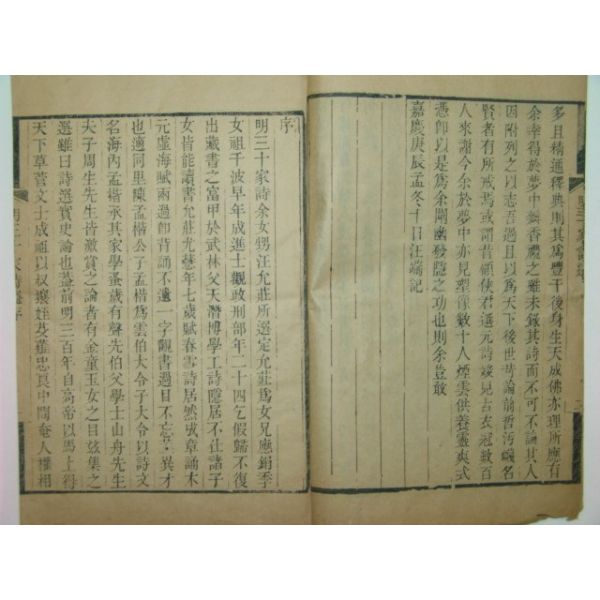 多且精通釋典則其爲豐干後身生天成佛亦理所應有
余幸得於夢中瓣香禮之雖未錄其詩而不可不論其人
因附列之以志吾過且以爲天下後世苛論前哲污衊名
賢者有所戒焉或謂昔顧俠君選元詩竣見古衣冠數百
人來謝今余於夢中亦見塑像數十人煙雲供養靈爽式
憑卽以是爲余闡幽發隱之功也則余豈敢
嘉慶庚辰孟冬十日汪端記
序
明三十家詩余女甥汪允莊所選定允莊爲女兄應鋗季
女祖千波早年成進士觀政刑部年二十四乞假歸不復
出藏書之富甲於武林父天潛博學工詩隱居不仕諸子
女皆能讀書允莊尤慧年七歲賦春雪詩居然成章誦木
元虛海賦兩過卽背誦不遺一字觀書過目不忘異才
也適同里陳孟楷公子孟楷爲雲伯大令子大令以詩文
名海內孟楷承其家學蚤歲有聲先伯父學士山舟先生
夫子周生先生皆激賞之論者有金童玉女之目玆集之
選雖曰詩選實史論也蓋前明三百年自高帝以馬上得
天下草菅文士成祖以叔攘姪芟薙忠良中閒奄人權相